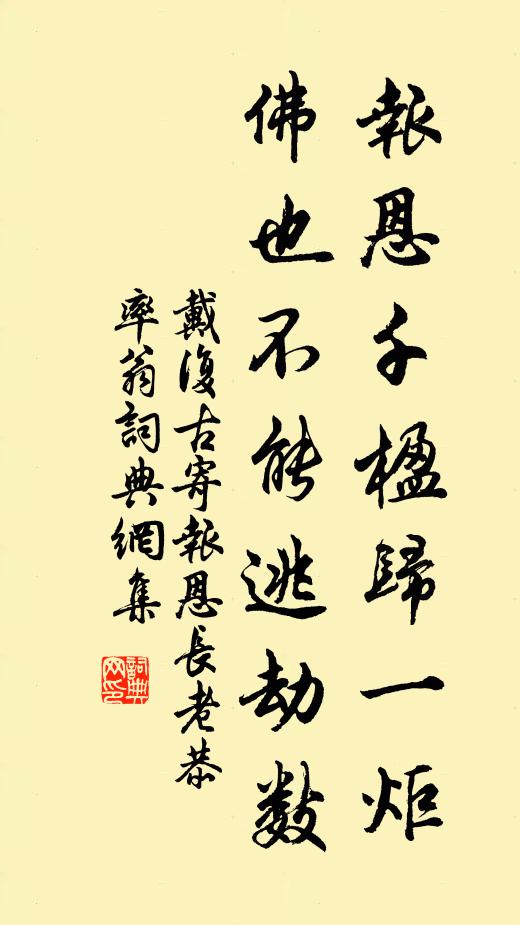 報恩千楹歸一炬
佛也不能逃劫数
戴復古寄報恩長老恭
率翁詞典網集
詞典网印